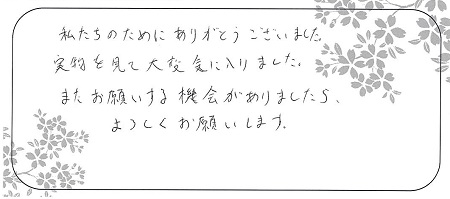 私たちのためにありがとうございました。
実物を見て大変気に入りました。
またお願いする機会がありましたら、
よろしくお願いします。